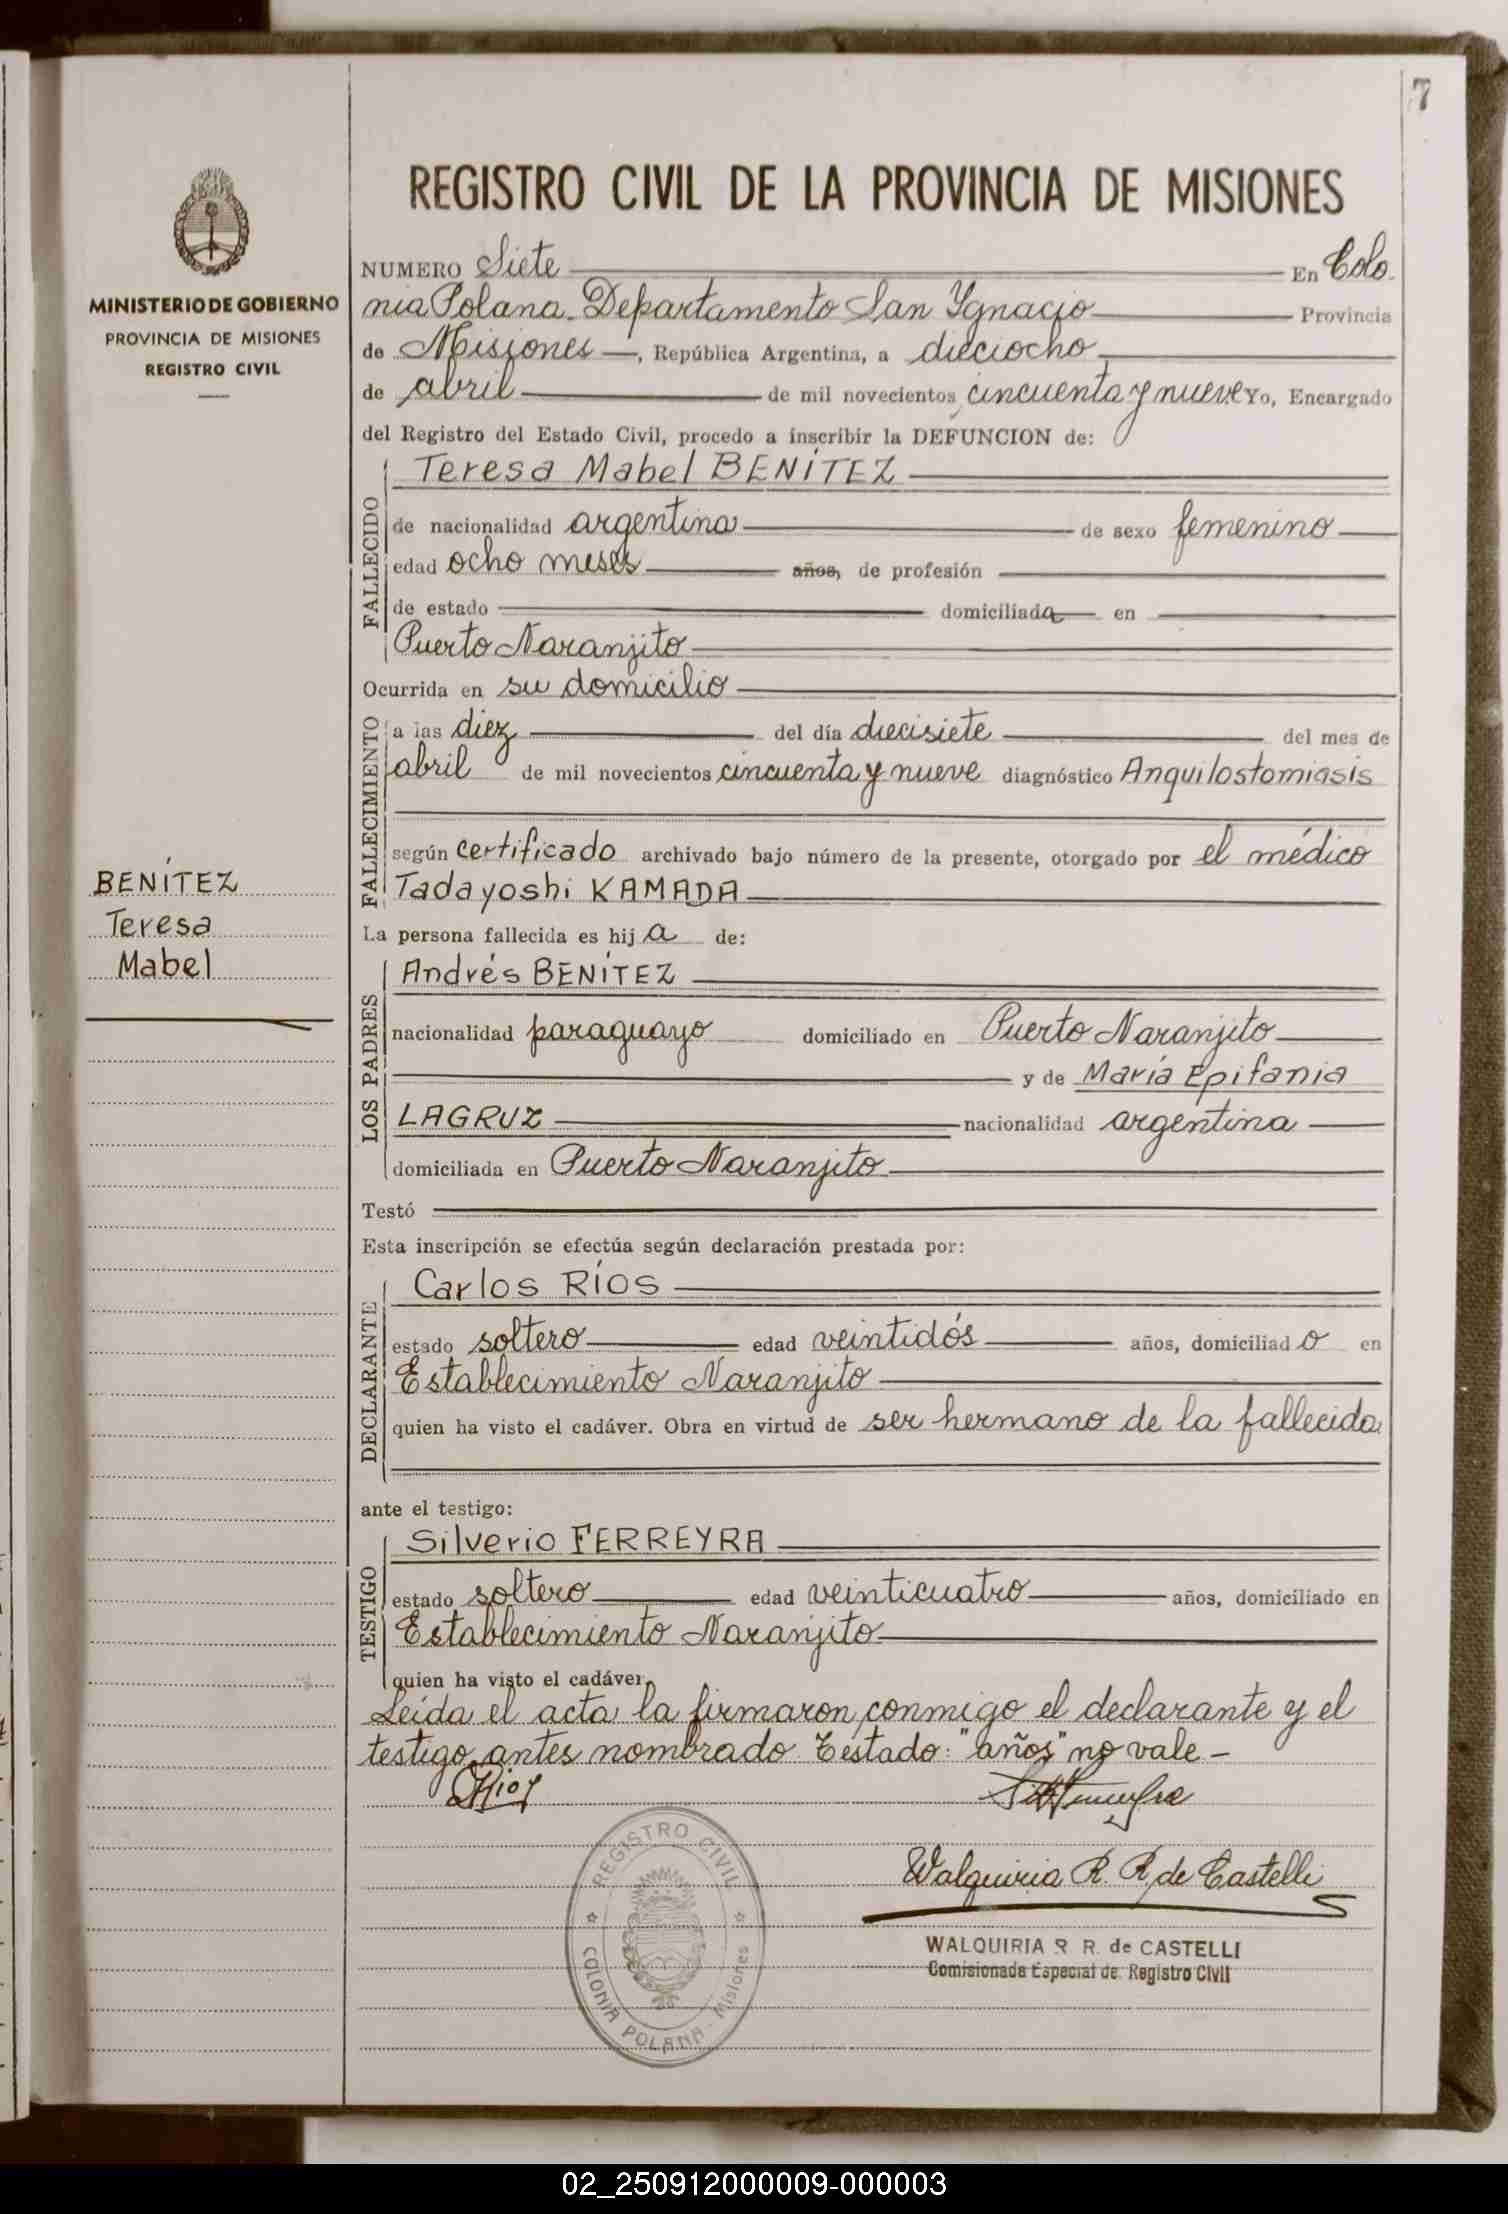 7
REGISTRO CIVIL DE LA PROVINCIA DE MISIONES
MINISTERIO DE GOBIERNO
PROVINCIA DE MISIONES
REGISTRO CIVIL
NUMERO Siete En Colo
nia Polana. Departamento San Ygnacio Provincia
de Misiones, República Argentina, a dieciocho
de abril de mil novecientos cincuenta y nueve Yo, Encargado
del Registro del Estado Civil, procedo a inscribir la DEFUNCION de:
FALLECIDO
Teresa Mabel BENÍTEZ
de nacionalidad argentina de sexo femenino
edad ocho meses años, de profesión
de estado domiciliada en
Puerto Naranjito
Ocurrida en su domicilio
FALLECIMIENTO
a las diez del día diecisiete del mes de
abril de mil novecientos cincuenta y nueve diagnóstico Anquilostomiasis
según certificado archivado bajo número de la presente, otorgado por el médico
Tadayoshi KAMADA
BENÍTEZ
Teresa
Mabel
La persona fallecida es hija de:
LOS PADRES
Andrés BENÍTEZ
nacionalidad paraguayo domiciliado en Puerto Naranjito
y de María Epifania
LAGRUZ nacionalidad argentina
domiciliada en Puerto Naranjito
Testó
Esta inscripción se efectúa según declaración prestada por:
DECLARANTE
Carlos RÍOS
estado soltero edad veintidós años, domiciliado en
Establecimiento Naranjito
quien ha visto el cadáver. Obra en virtud de ser hermano de la fallecida
ante el testigo:
TESTIGO
Silverio FERREYRA
estado soltero edad veinticuatro años, domiciliado en
Establecimiento Naranjito
quien ha visto el cadáver.
Leída el acta la firmaron conmigo el declarante y el
testigo antes nombrado. Testado: "años" no vale -
CRios
Walquiria R. R. de Castelli
WALQUIRIA R R. de CASTELLI
Comisionada Especial de Registro Civil
REGISTRO CIVIL
COLONIA POLANA - Misiones
02_250912000009-000003